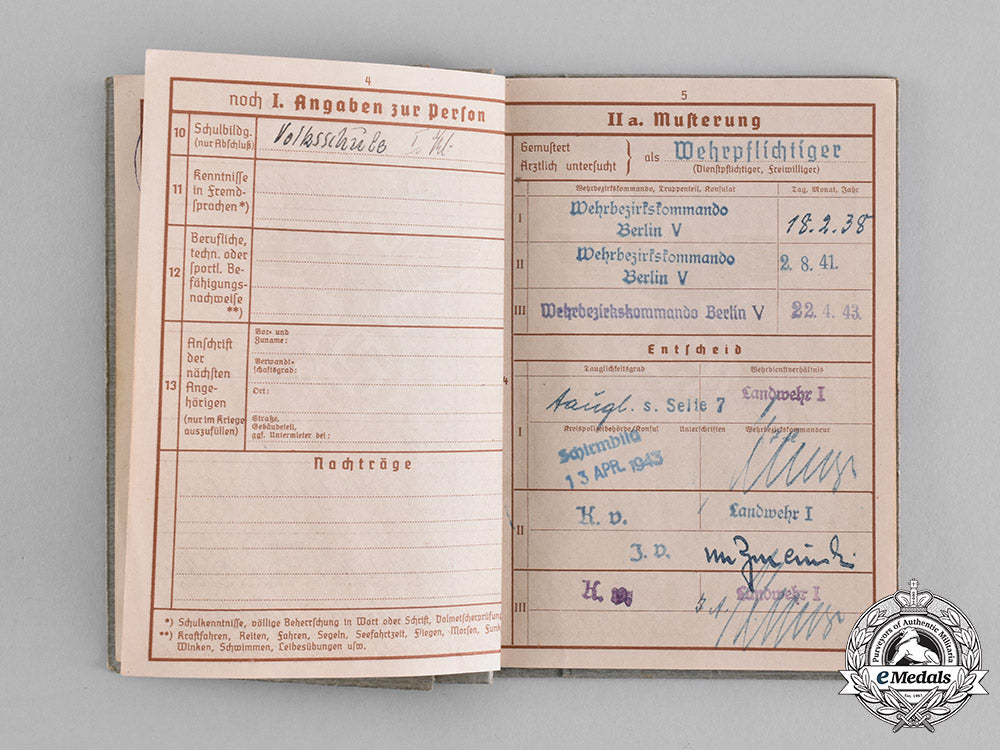 4
noch I. Angaben zur Person
10 Schulbildg. (nur Abschluß)
Volksschule I. Kl.
11 Kenntnisse in Fremd-
sprachen*)
12 Berufliche,
techn. oder
sportl. Be-
fähigungs-
nachweise
**)
13 Anschrift
der
nächsten
Ange-
hörigen
(nur im Kriege
auszufüllen)
Vor- und
Zuname:
Verwandt-
schaftsgrad:
Ort:
Straße,
Gebäudeteil,
ggf. Untermieter bei:
Nachträge
*) Schulkenntnisse, völlige Beherrschung in Wort oder Schrift, Dolmetscherprüfung
**) Kraftfahren, Reiten, Fahren, Segeln, Seefahrtzeit, Fliegen, Morsen, Funk
Winken, Schwimmen, Leibesübungen usw.
5
II a. Musterung
Gemustert
Ärztlich untersucht } als Wehrpflichtiger
(Dienstpflichtiger, Freiwilliger)
Wehrbezirkskommando, Truppenteil, Konsulat Tag, Monat, Jahr
I Wehrbezirkskommando
Berlin V 18.2.38
II Wehrbezirkskommando
Berlin V 2.8.41.
III Wehrbezirkskommando Berlin V 22.4.43.
Entscheid
Tauglichkeitsgrad Wehrdienstverhältnis
I taugl. s. Seite 7 Landwehr I
Kreispolizeibehörde/Konsul Unterschriften Wehrbezirkskommandeur
Schirmbild
13 APR. 1943
II K. v. Landwehr I
J. V.
III K. v. Landwehr I
J. A.
Purveyors of Authentic Militaria
eMedals